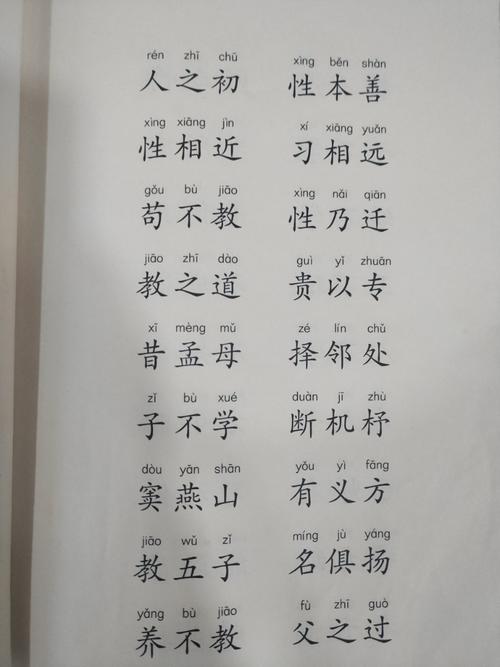 rén zhī chū xìng běn shàn
人之初 性本善
xìng xiāng jìn xí xiāng yuǎn
性相近 习相远
gǒu bù jiāo xìng nǎi qiān
苟不教 性乃迁
jiāo zhī dào guì yǐ zhuān
教之道 贵以专
xī mèng mǔ zé lín chǔ
昔孟母 择邻处
zǐ bù xué duàn jī zhù
子不学 断机杼
dòu yān shān yǒu yì fāng
窦燕山 有义方
jiāo wǔ zǐ míng jù yáng
教五子 名俱扬
yǎng bù jiāo fù zhī guò
养不教 父之过